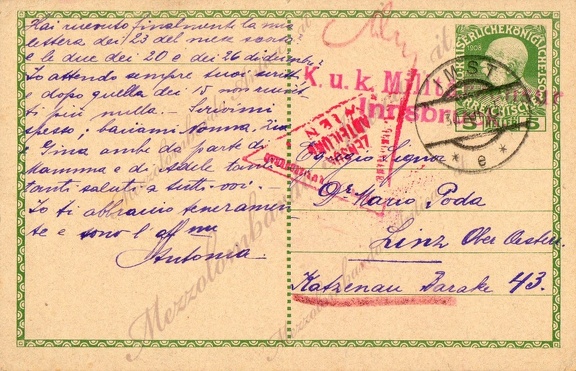 Hai ricevuto finalmente la mia
lettera dei 23 del mese scorso
e le due dei 20 e dei 26 dicembre?
Io attendo sempre tuoi scritti,
e dopo quella dei 15 non ricevetti
più nulla. – Scrivimi
spesso; baciami Nonna, Zia
Gina anche da parte di
Mamma e di Adele tanti
tanti saluti a tutti voi.
Io ti abbraccio teneramen-
te e sono l'aff
Antonia.
K. u. k. Militär
Innsbruck
ZENSUR
ABTEILUNG
WIEN
KAISERLICHE KÖNIGLICHE
1908
IMST
5 5
* e *
Egregio Signor
Dr Mario Poda
Linz Ober Oester.
Katzenau Barake 43.
Mezzolombardo
Mezzolombardo